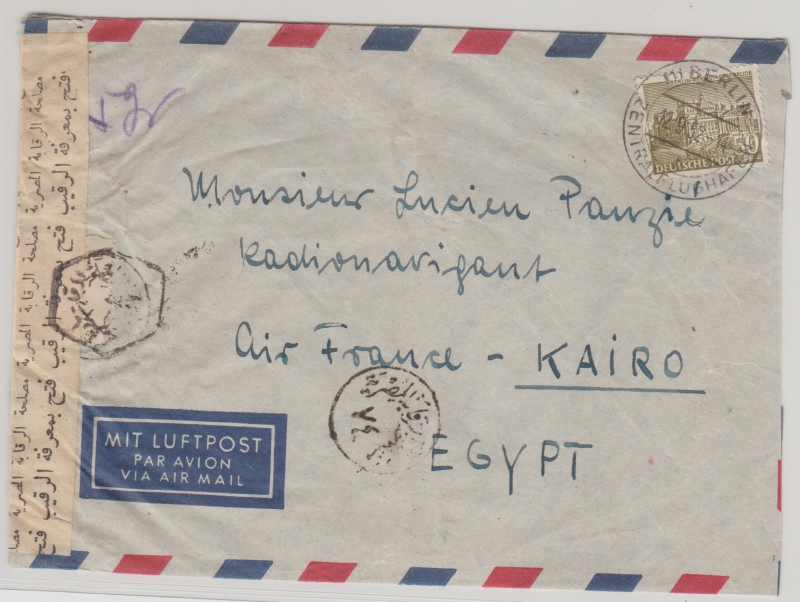 BERLIN
ZENTRALFLUGHAFEN
DEUTSCHE POST
Monsieur Lucien Panzie
Radionavigant
Air France - KAIRO
EGYPT
MIT LUFTPOST
PAR AVION
VIA AIR MAIL
فتح بمعرفة الرقيب فتح بمعرفة الرقيب فتح بمعرفة الرقيب فتح
مصلحة الرقابة المصرية مصلحة الرقابة المصرية مصلحة الرقابة المصرية
٧٤